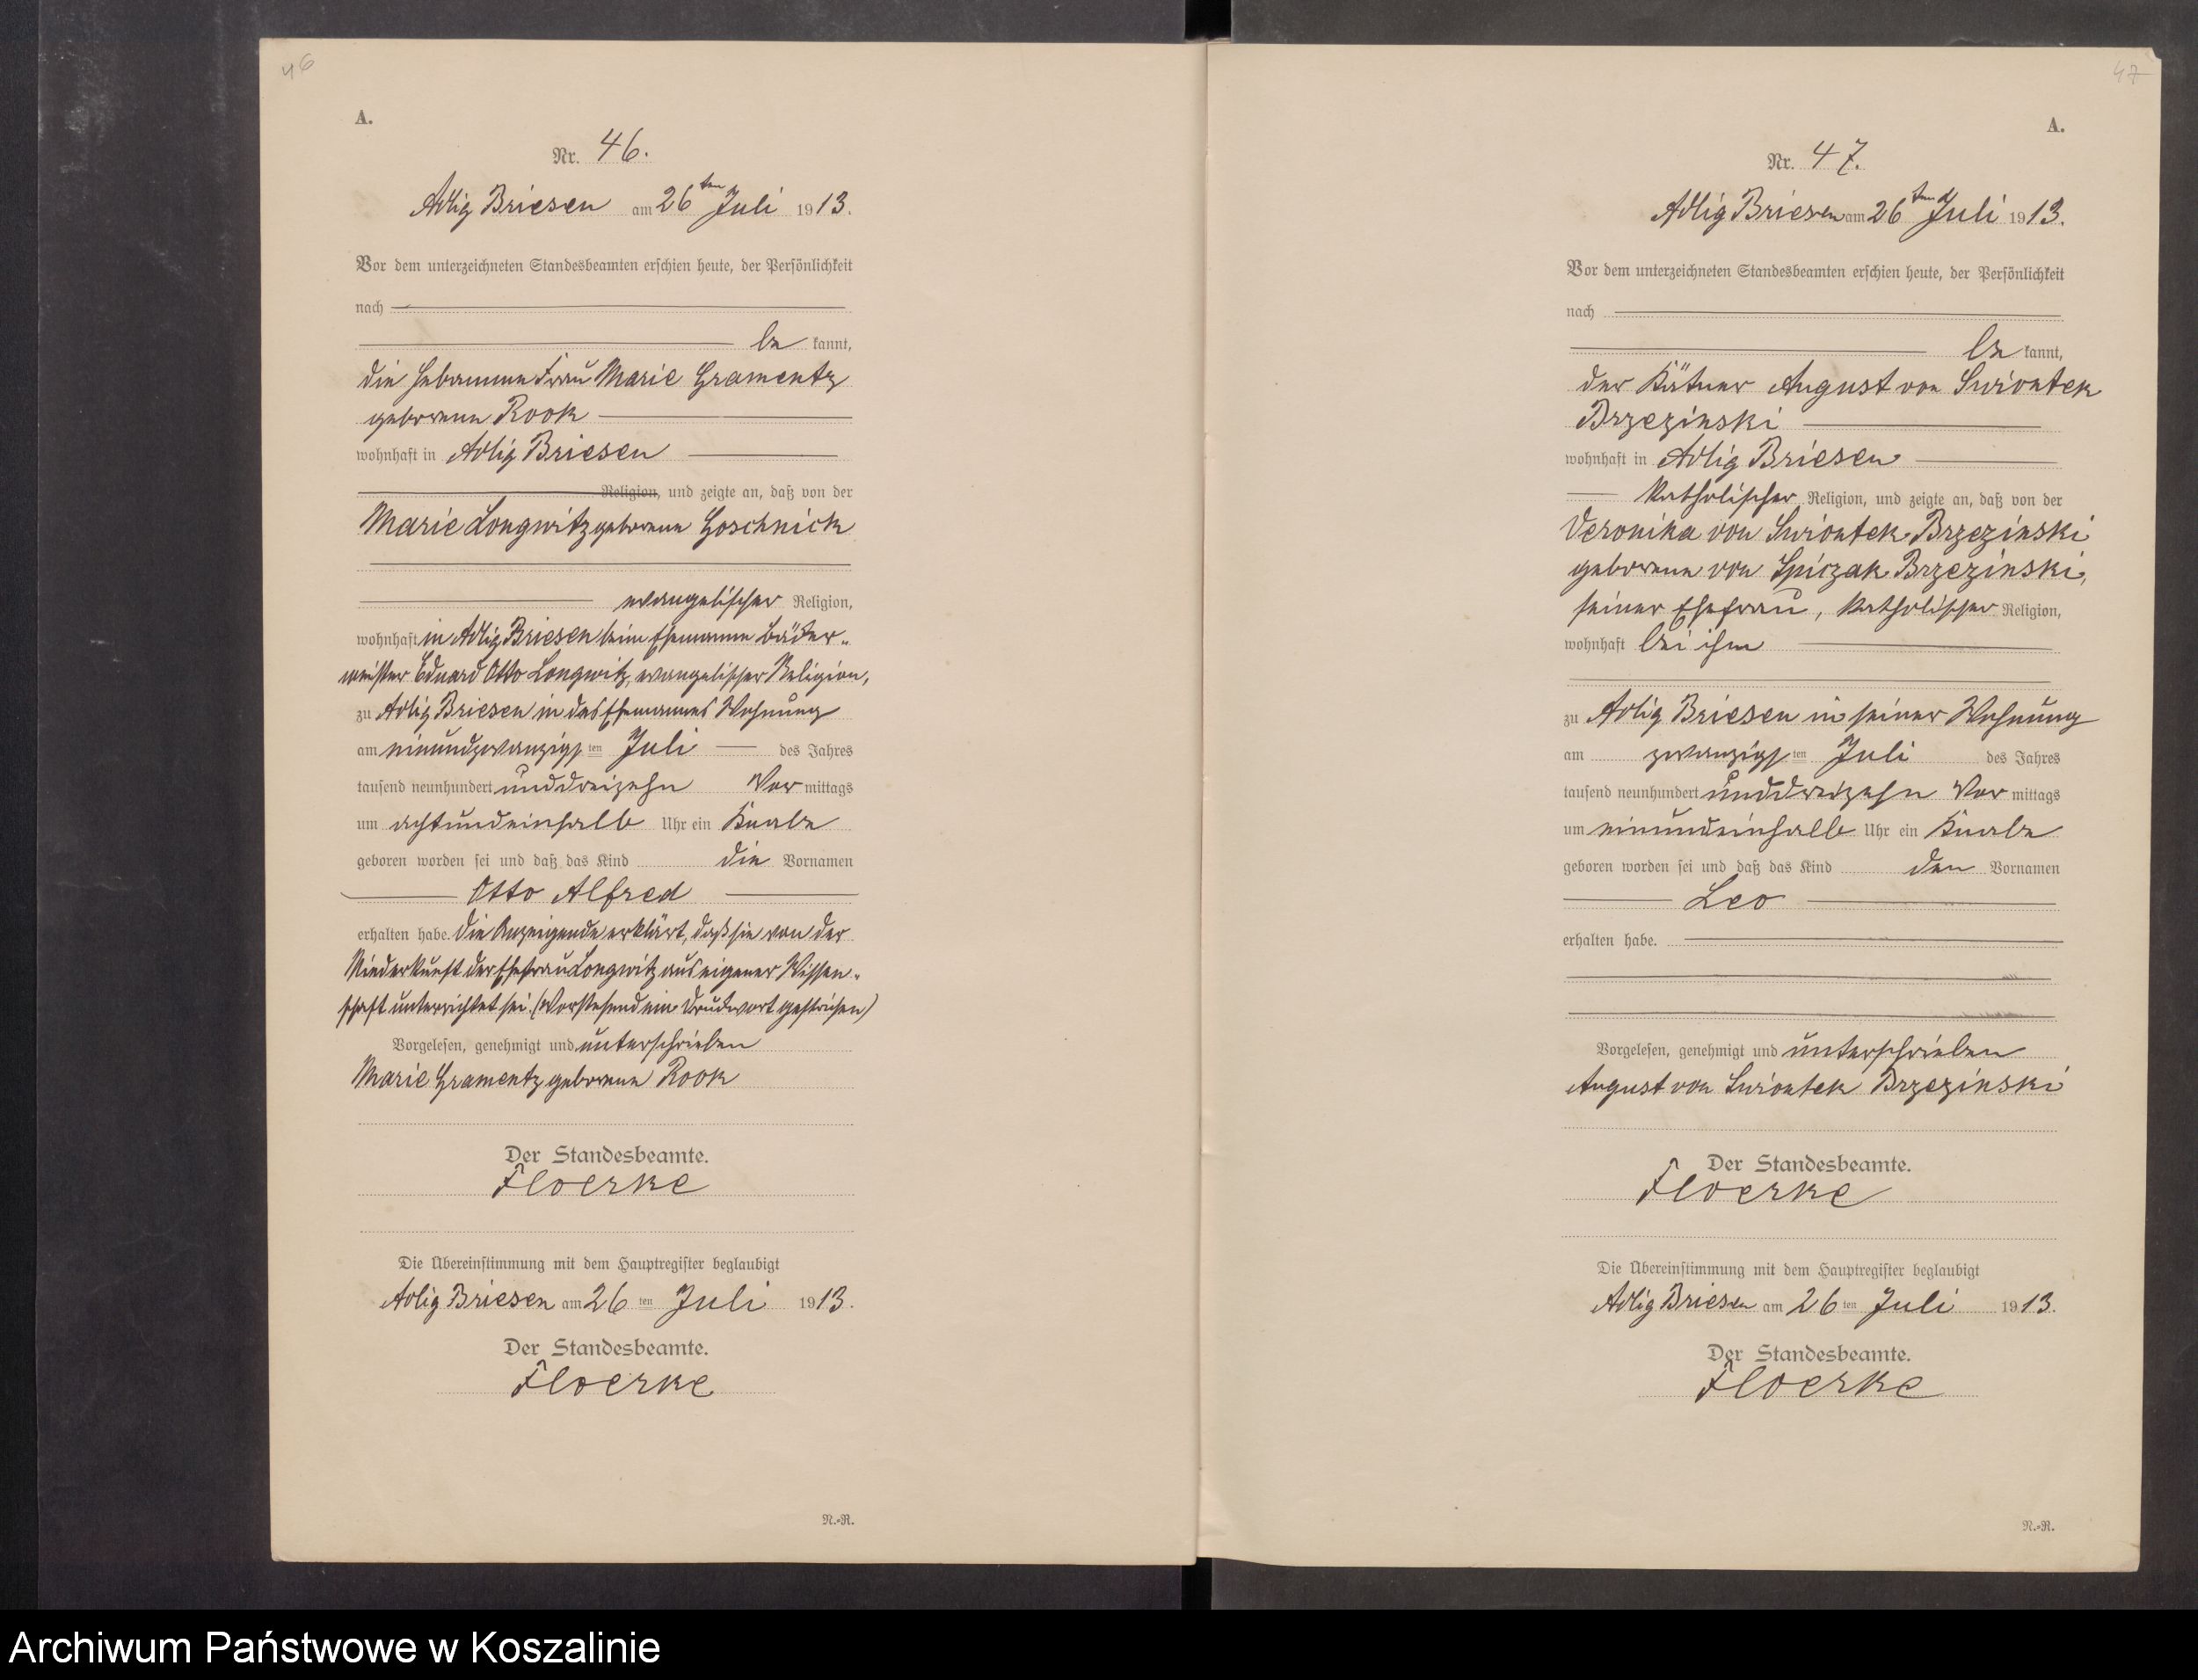 46
A.
Nr. 46.
Adlig Briesen am 26ten Juli 1913.
Vor dem unterzeichneten Standesbeamten erschien heute, der Persönlichkeit
nach
be kannt,
die Hebamme Frau Marie Gramentz
geborene Rook
wohnhaft in Adlig Briesen
Religion, und zeigte an, daß von der
Marie Longwitz geborene Goschnick
evangelischer Religion,
wohnhaft in Adlig Briesen beim Ehemanne Bäcker-
meister Eduard Otto Longwitz, evangelischer Religion,
zu Adlig Briesen in des Ehemannes Wohnung
am einundzwanzigsten Juli des Jahres
tausend neunhundert unddreizehn Vormittags
um achtundeinhalb Uhr ein Knabe
geboren worden sei und daß das Kind die Vornamen
Otto Alfred
erhalten habe. Die Anzeigende erklärt, daß sie von der
Niederkunft der Ehefrau Longwitz aus eigener Wissen-
schaft unterrichtet sei. (Vorstehend ein Druckwort gestrichen)
Vorgelesen, genehmigt und unterschrieben
Marie Gramentz geborene Rook
Der Standesbeamte.
Floerke
Die Übereinstimmung mit dem Hauptregister beglaubigt
Adlig Briesen am 26ten Juli 1913.
Der Standesbeamte.
Floerke
N.-R.
47
A.
Nr. 47.
Adlig Briesen am 26ten Juli 1913.
Vor dem unterzeichneten Standesbeamten erschien heute, der Persönlichkeit
nach
be kannt,
der Kätner August von Swiontek
Brzezinski
wohnhaft in Adlig Briesen
katholischer Religion, und zeigte an, daß von der
Veronika von Swiontek Brzezinski
geborene von Spiczak Brzezinski,
seiner Ehefrau, katholischer Religion,
wohnhaft bei ihm
zu Adlig Briesen in seiner Wohnung
am zwanzigsten Juli des Jahres
tausend neunhundert unddreizehn Vormittags
um einundeinhalb Uhr ein Knabe
geboren worden sei und daß das Kind den Vornamen
Leo
erhalten habe.
Vorgelesen, genehmigt und unterschrieben
August von Swiontek Brzezinski
Der Standesbeamte.
Floerke
Die Übereinstimmung mit dem Hauptregister beglaubigt
Adlig Briesen am 26ten Juli 1913.
Der Standesbeamte.
Floerke
N.-R.
Archiwum Państwowe w Koszalinie